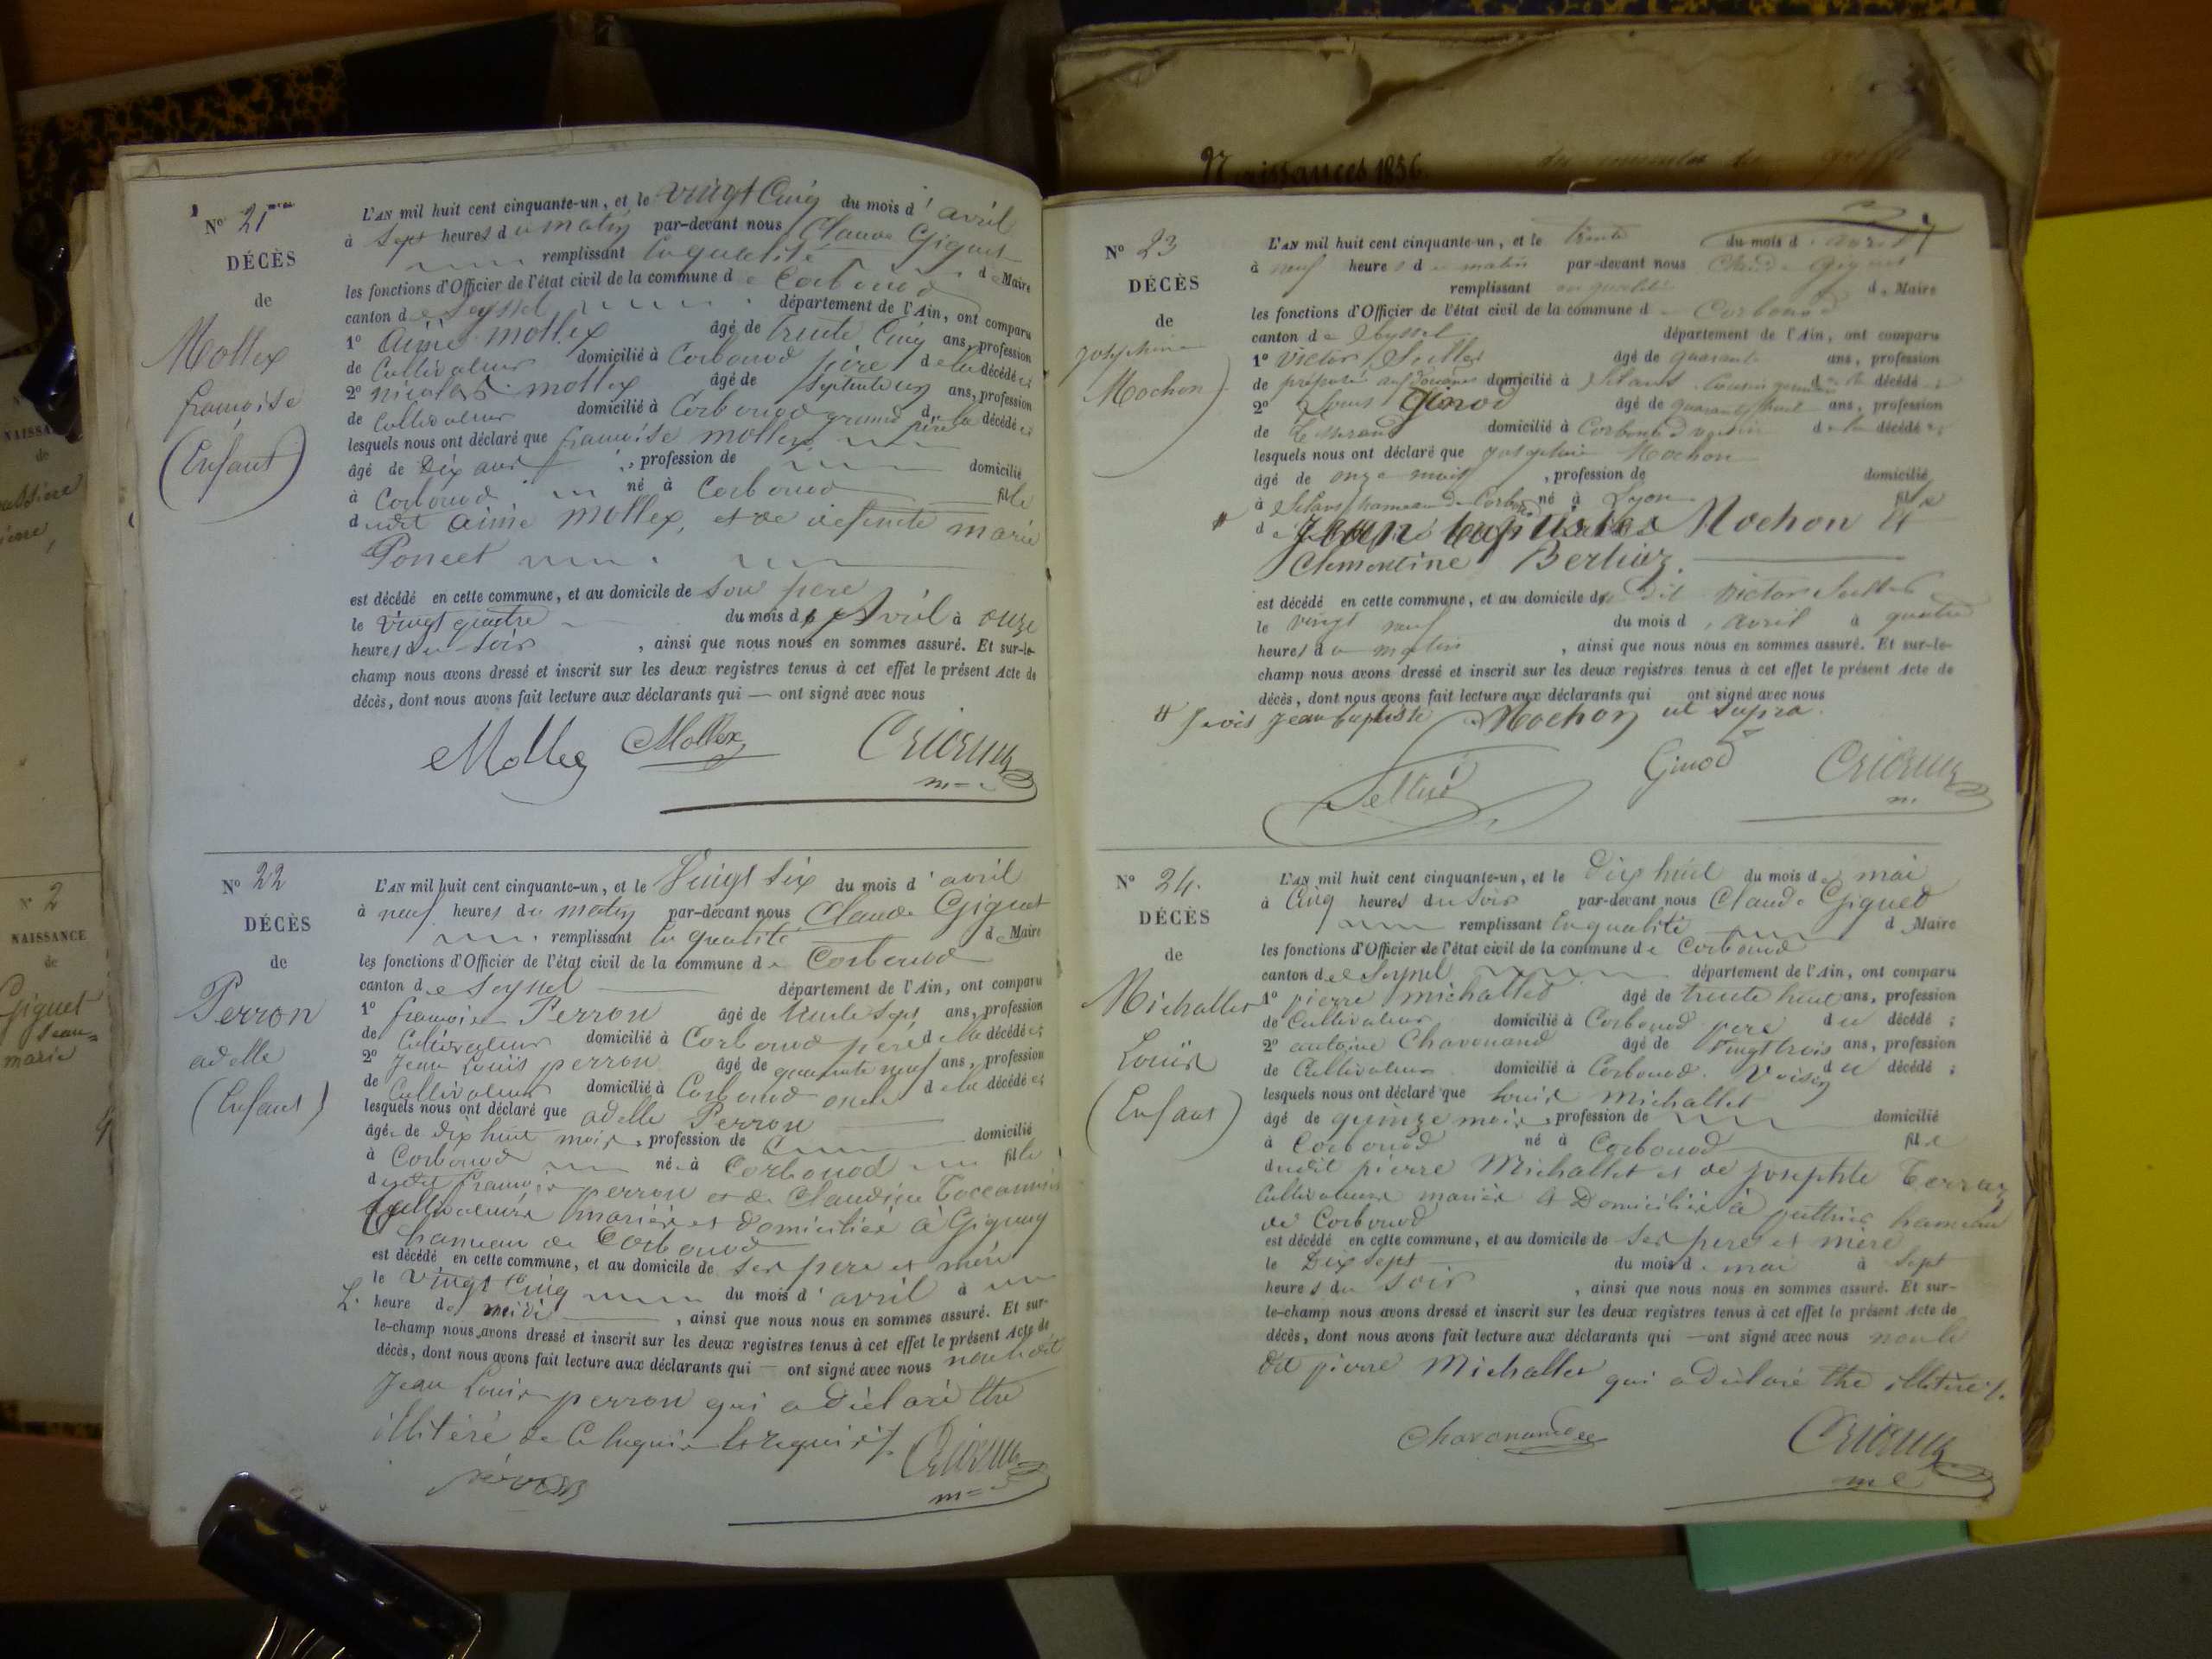 Naissances 1856
N° 21
DÉCÈS
de
Mollex
françoise
(Enfant)
L'AN mil huit cent cinquante-un, et le vingt Cinq du mois d'avril
à sept heures du matin par-devant nous Claude Giguet
remplissant en qualité de Maire
les fonctions d'Officier de l'état civil de la commune de Corbonod
canton de Seyssel département de l'Ain, ont comparu
1° Aimé mollex âgé de trente Cinq ans, profession
de Cultivateur domicilié à Corbonod père de la décédée;
2° nicolas mollex âgé de septante un ans, profession
de Cultivateur domicilié à Corbonod grand père de la décédée;
lesquels nous ont déclaré que françoise mollex
âgé de Dix ans, profession de domicilié
à Corbonod né à Corbonod fille
dudit Aimé Mollex, et de défunte marie
Poncet
est décédé en cette commune, et au domicile de son pere
le vingt quatre du mois d'Avril à onze
heures du soir, ainsi que nous nous en sommes assuré. Et sur-le-
champ nous avons dressé et inscrit sur les deux registres tenus à cet effet le présent Acte de
décès, dont nous avons fait lecture aux déclarants qui — ont signé avec nous
Mollex Mollex
N° 22
DÉCÈS
de
Perron
adelle
(Enfant)
L'AN mil huit cent cinquante-un, et le Vingt six du mois d'avril
à neuf heures du matin par-devant nous Claude Giguet
remplissant en qualité de Maire
les fonctions d'Officier de l'état civil de la commune de Corbonod
canton de Seyssel département de l'Ain, ont comparu
1° françois Perron âgé de trente sept ans, profession
de Cultivateur domicilié à Corbonod père de la décédée;
2° Jean Louis perron âgé de quarante neuf ans, profession
de Cultivateur domicilié à Corbonod oncle de la décédée;
lesquels nous ont déclaré que adelle Perron
âgé de dix huit mois, profession de domicilié
à Corbonod né à Corbonod fille
dudit françois perron et de Claudine
Cultivateurs mariés et domiciliés à Gignez
hameau de Corbonod
est décédé en cette commune, et au domicile de ses pere et mère
le vingt Cinq du mois d'avril à
heure de midi, ainsi que nous nous en sommes assuré. Et sur-
le-champ nous avons dressé et inscrit sur les deux registres tenus à cet effet le présent Acte de
décès, dont nous avons fait lecture aux déclarants qui — ont signé avec nous non ledit
Jean Louis perron qui a déclaré être
illitéré de Ce enquis et requis
N° 23
DÉCÈS
de
Josephine
Mochon
L'AN mil huit cent cinquante-un, et le trente du mois d'avril
à neuf heures du matin par-devant nous Claude Giguet
remplissant en qualité de Maire
les fonctions d'Officier de l'état civil de la commune de Corbonod
canton de Seyssel département de l'Ain, ont comparu
1° Victor âgé de quarante ans, profession
de préposé aux douanes domicilié à Silans Cousin germain de la décédée;
2° Louis Ginod âgé de quarante huit ans, profession
de tisserand domicilié à Corbonod voisin de la décédée;
lesquels nous ont déclaré que josephine Mochon
âgé de onze mois, profession de domicilié
à Silans hameau de Corbonod né à Lyon fille
de Jean baptiste Mochon et
Clémentine Berlioz.
est décédé en cette commune, et au domicile du dit victor
le vingt neuf du mois d'avril à quatre
heures du matin, ainsi que nous nous en sommes assuré. Et sur-le-
champ nous avons dressé et inscrit sur les deux registres tenus à cet effet le présent Acte de
décès, dont nous avons fait lecture aux déclarants qui ont signé avec nous
Jean baptiste Mochon ut supra.
Ginod
N° 24.
DÉCÈS
de
Michallet
Louis
(Enfant)
L'AN mil huit cent cinquante-un, et le Dix huit du mois de mai
à Cinq heures du soir par-devant nous Claude Giguet
remplissant en qualité de Maire
les fonctions d'Officier de l'état civil de la commune de Corbonod
canton de Seyssel département de l'Ain, ont comparu
1° pierre michallet âgé de trente huit ans, profession
de Cultivateur domicilié à Corbonod pere du décédé;
2° antoine Chavonand âgé de vingt trois ans, profession
de Cultivateur domicilié à Corbonod Voisin du décédé;
lesquels nous ont déclaré que Louis Michallet
âgé de quinze mois, profession de domicilié
à Corbonod né à Corbonod fils
dudit pierre Michallet et de josephte Terraz
Cultivateurs mariés & Domiciliés à hameau
de Corbonod
est décédé en cette commune, et au domicile de ses pere et mère
le Dix sept du mois de mai à sept
heures du soir, ainsi que nous nous en sommes assuré. Et sur-
le-champ nous avons dressé et inscrit sur les deux registres tenus à cet effet le présent Acte de
décès, dont nous avons fait lecture aux déclarants qui — ont signé avec nous non le
dit pierre Michallet qui a déclaré être illitéré
Chavonand
N° 2
NAISSANCE
de
Giguet
Jean=
marie